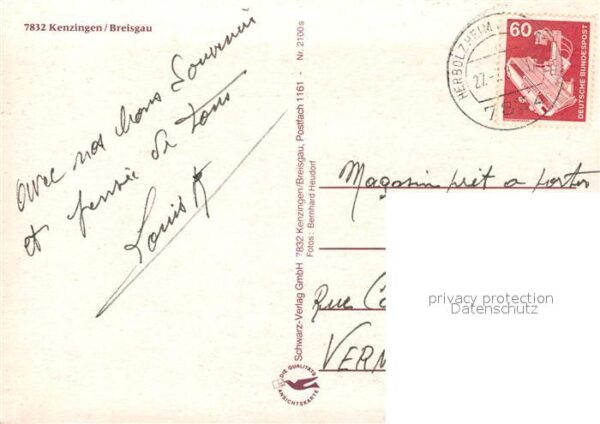 7832 Kenzingen / Breisgau
avec nos bons Souvenir
et pensée de tous
Louis
Schwarz-Verlag GmbH 7832 Kenzingen/Breisgau, Postfach 1161 - Nr. 2100 s
Fotos: Bernhard Heudorf
DIE QUALITÄTS
ANSICHTSKARTE
HERBOLZHEIM
27.
7834
60
DEUTSCHE BUNDESPOST
Magasin prêt a porter
Rue
VERN
privacy protection
Datenschutz